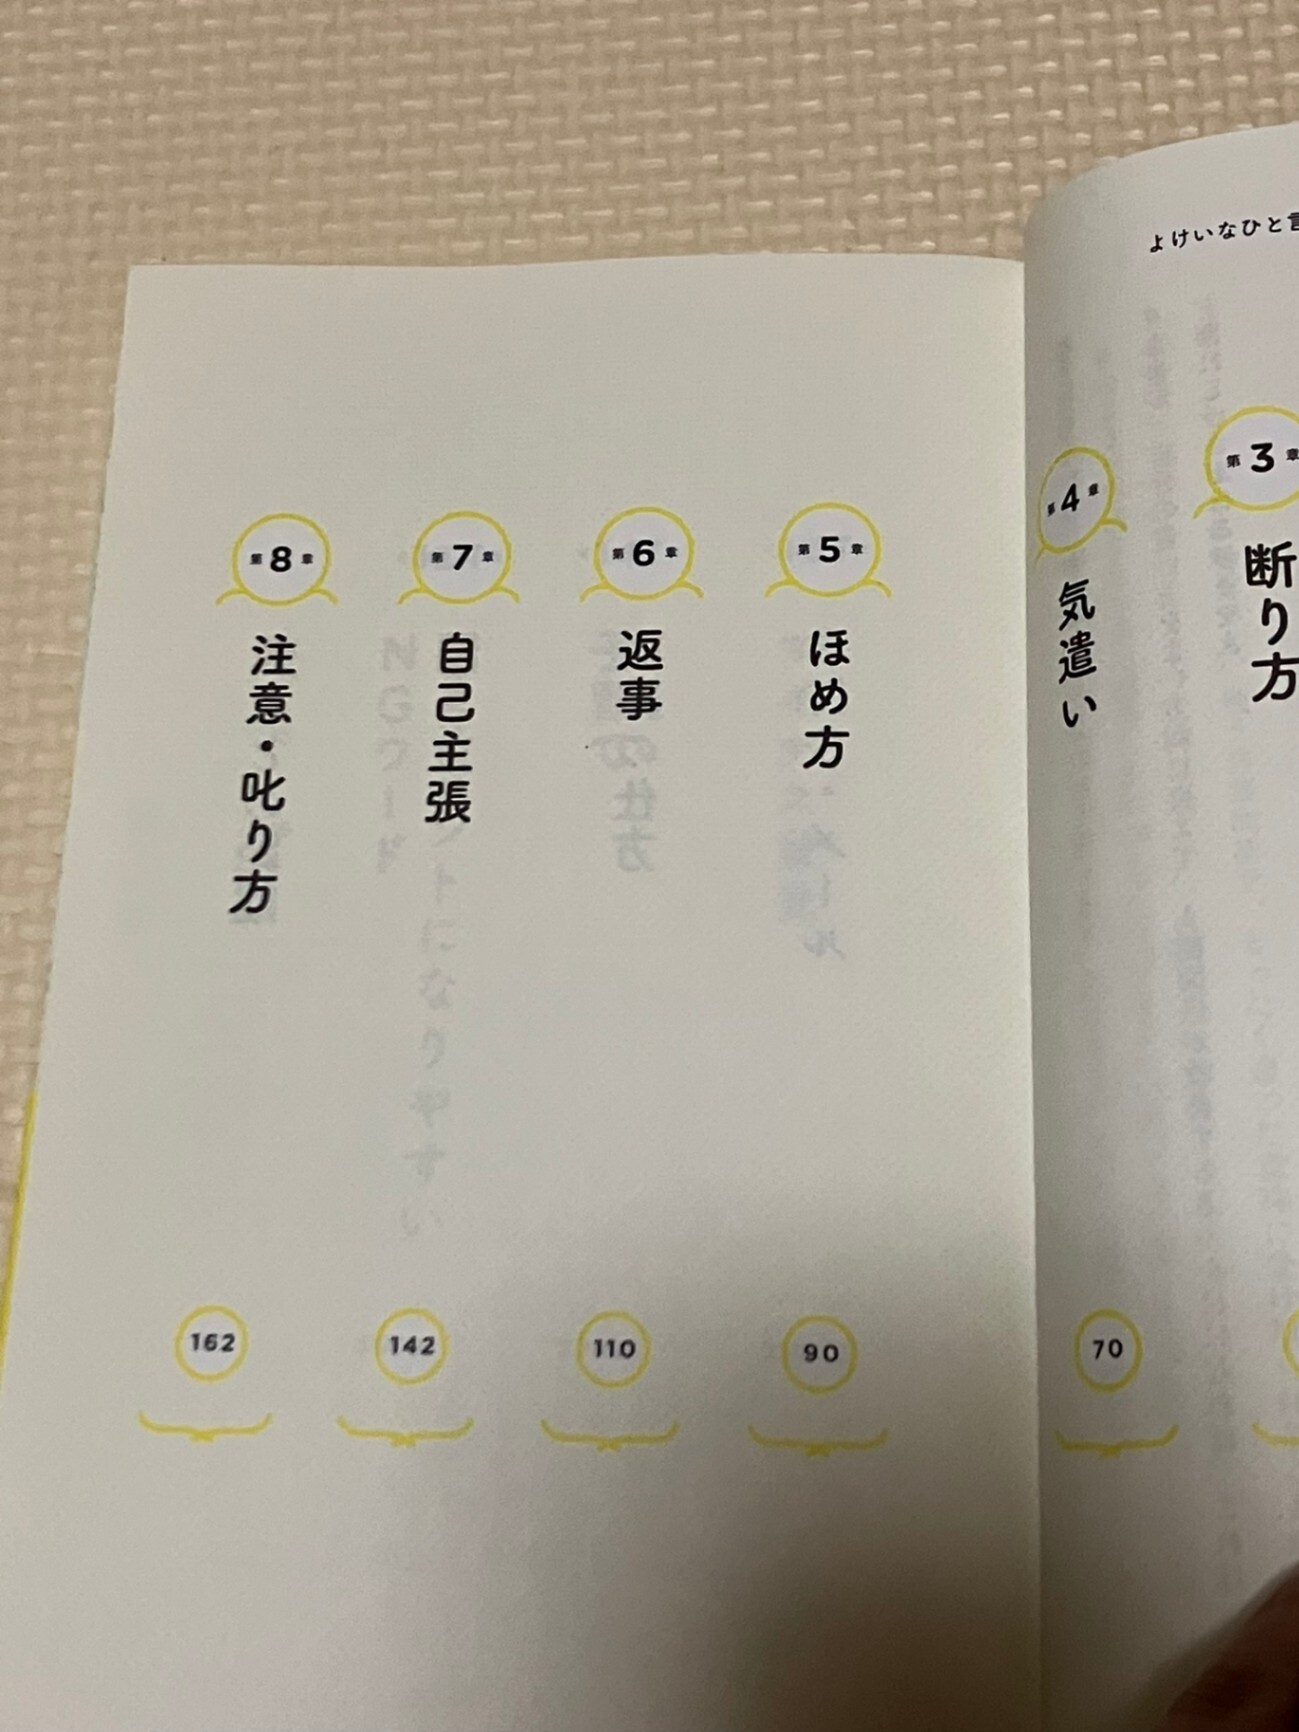 よけいなひと言
第3章
断り方
第4章
気遣い
70
第5章
ほめ方
90
第6章
返事
110
第7章
自己主張
142
第8章
注意・叱り方
162